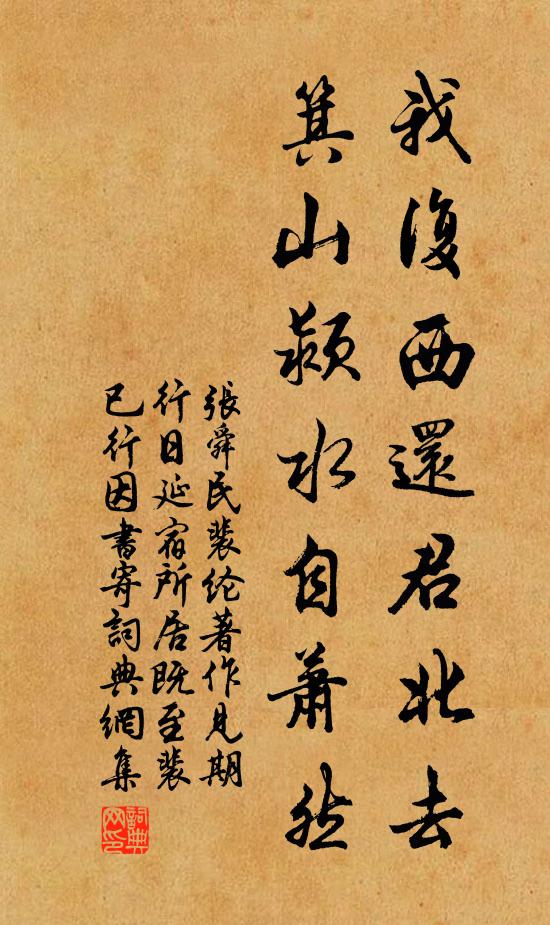 我復西還君北去
箕山潁水自蕭然
張舜民裴纶著作見期
行日延宿所居既至裴
已行因書寄詞典網集
詞典网印